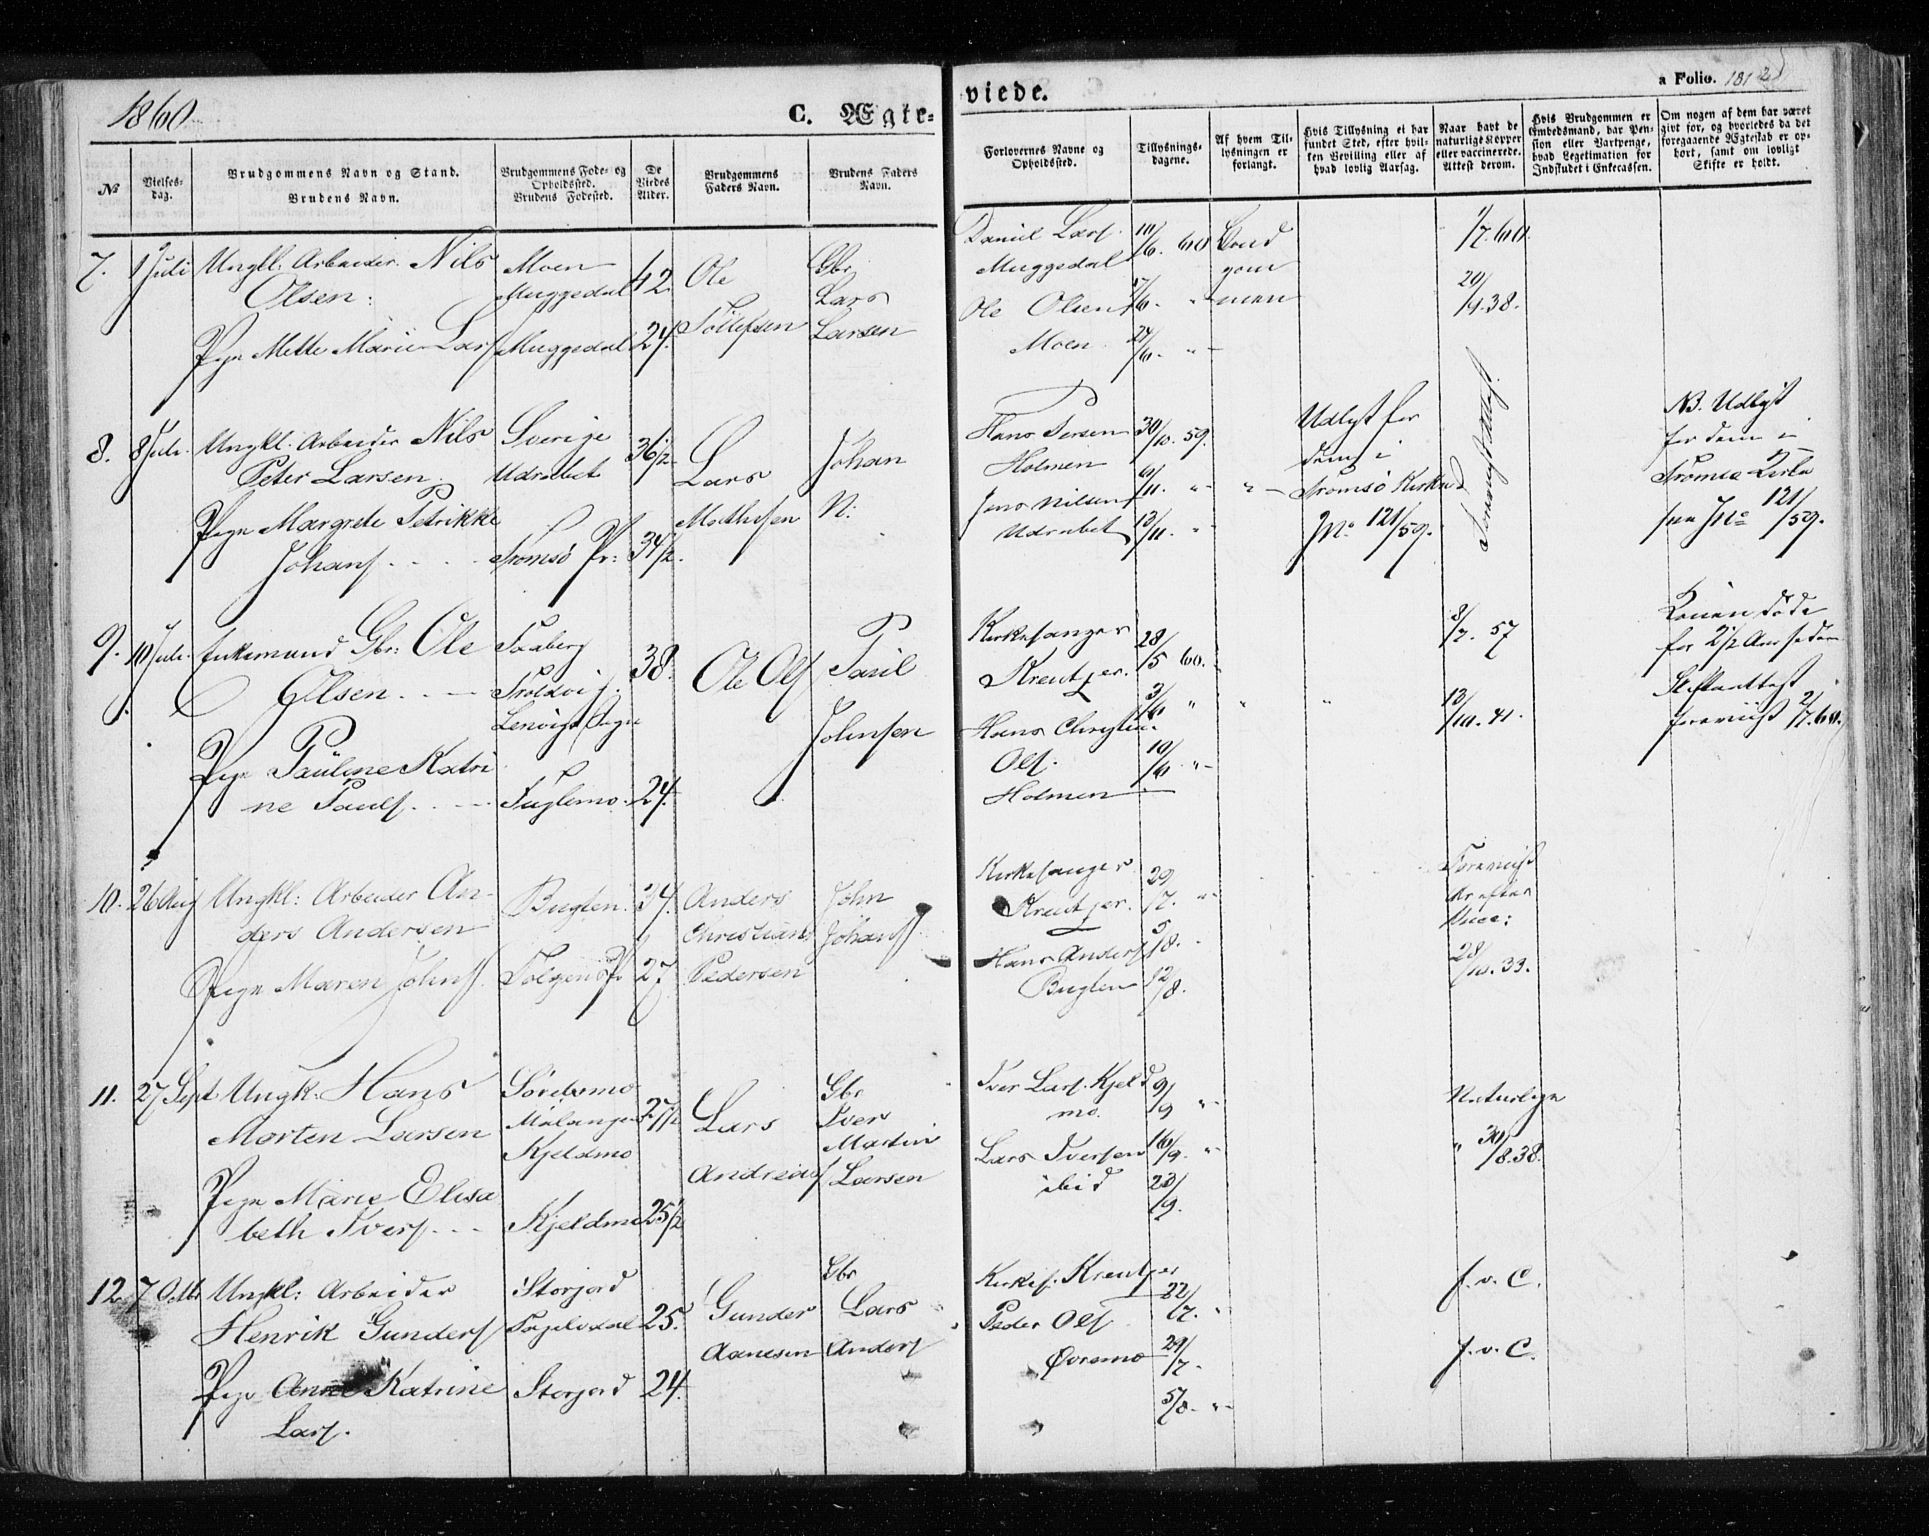 1860
C. Ægte-
viede.
a Folio. 181
№
Vielses-dag.
Brudgommens Navn og Stand.
Brudens Navn.
Brudgommens Føde- og Opholdssted.
Brudens Fødested.
De Viedes Alder.
Brudgommens Faders Navn.
Brudens Faders Navn.
Forlovernes Navne og Opholdssted.
Tillysnings-dagene.
Af hvem Tillysningen er forlangt.
Hvis Tillysning ei har fundet Sted, efter hvilken Bevilling eller af hvad lovlig Aarsag.
Naar havt de naturlige Kopper eller vaccinerede. Attest derom.
Hvis Brudgommen er Embedsmand, har Pension eller Vartpenge, hvad Legitimation for Indskudet i Enkecassen.
Om nogen af dem har været givt for, og hvorledes da det foregaaende Ægteskab er ophørt, samt om lovligt Skifte er holdt.
7. 1 Juli Ungkl. Arbeider Nils Olsen
Moen Muggedal 42. Ole Tollefsen
Gbr Lars Larsen
Pige Mette Marie Lars Muggedal 24.
Daniel Lars. Muggedal
Ole Olsen Moen
10/6. 60
17/6. "
24/6. "
Brudgommen
1/7. 60
20/9. 38.
8. 8 Juli. Ungkl. Arbeider Nils Peter Larsen
Sverige Udrabet 36 1/2 Lars Mathisen
Johan N:
Pige Margrete Petrikke Johans
Tromsö Pr: 34 1/2.
Hans Persen Holmen
Jens Nilsen Udrabet
30/10. 59.
6/11. "
13/11. "
Udlyst for dem i Tromsö Kirke
No 121/59.
NB. Udlyst for dem i Tromsö Kirke
No 121/59.
9. 10 Juli. Enkemand Gbr: Ole Olsen
Faaberg Troldvig Lenvigs Sogn 38. Ole Ols
Paul Johnsen
Pige Pauline Katrine Pauls
Fuglemo. 24.
Kirkesanger Kreutzer.
Hans Christian Ols. Holmen
28/5 60.
3/6 "
10/6 "
8/7. 57
13/10. 41.
Konen döde for 2 1/2 Aar siden
Skifteattest foreviist 2/7. 60.
10. 26 Aug Ungkl: Arbeider Anders Andersen
Buglen. 34. Anders Christians Pedersen
John Johans
Pige Maren Johns. Tolgens Pr 27
Kirkesanger Kreutzer.
Hans Anders Buglen
29/7. "
5/8.
12/8.
Foreviist
28/10. 33.
11. 27 Sept Ungk. Hans Morten Larsen
Sörelvmo Malangen Kjeldmo 27 1/2 Lars Andreas
Gbr Iver Martin Larsen
Pige Marie Elisabeth Ivers
Kjeldmo 25 1/2
Iver Lars. Kjeldmo.
Lars Iversen ibid
9/9 "
16/9. "
23/9.
Naturlige
" 30/8. 38.
12. 7 Octbr Ungkl: Arbeider Henrik Gunders
Storjord 25. Gunder Aanesen
Gbr Lars Anders
Pige Anne Katrine Lars.
Storjord 24.
Kirkes. Kreutzer
Peder Ols Øvremo
22/7. "
29/7.
5/8. "
f. v. C.
f. v. C.